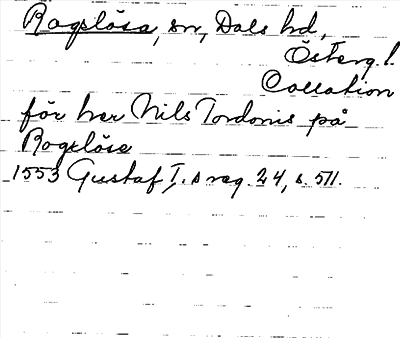 Rogslösa, sn, Dals hd,
Österg.l.
Collation
för her Nils Tordonis på
Rogslösa
1553 Gustaf I:s reg. 24, s. 511.